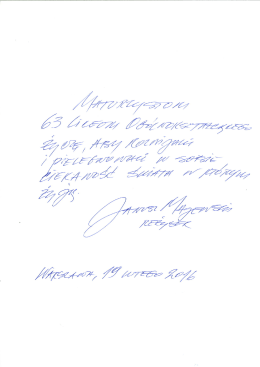 Maturzystom
63 Liceum Ogólnokształcącego
życzę, aby rozwijali
i pielęgnowali w sobie
ciekawość świata w którym
żyją
Janusz Majewski
reżyser
Warszawa, 19 lutego 2016